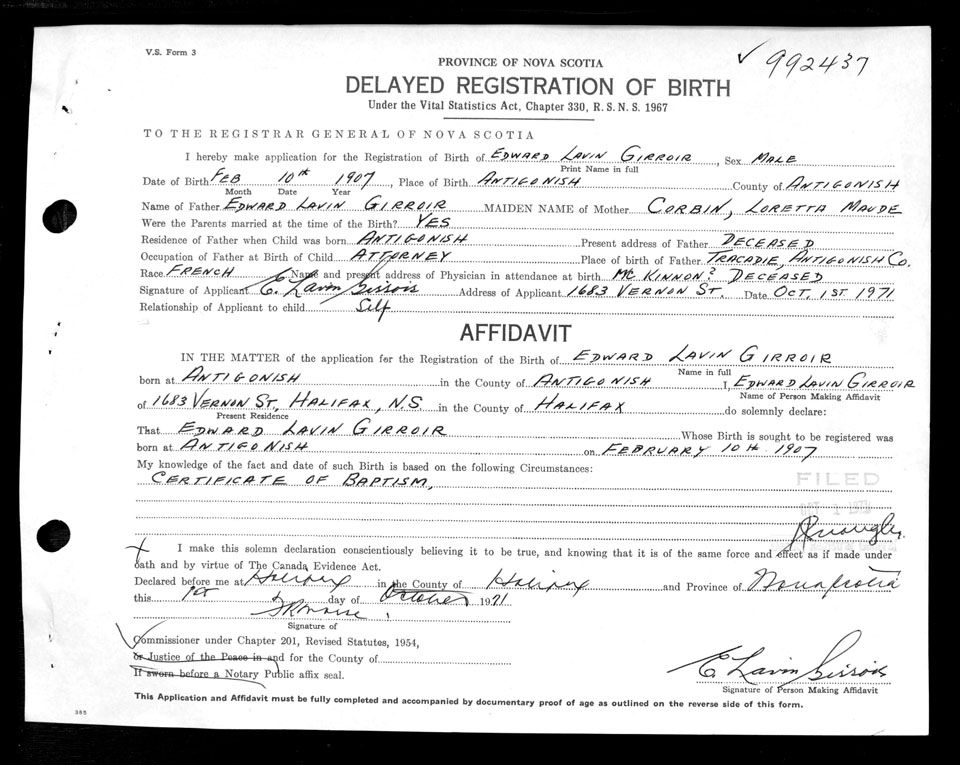 V.S. Form 3
✓ 992437
PROVINCE OF NOVA SCOTIA
DELAYED REGISTRATION OF BIRTH
Under the Vital Statistics Act, Chapter 330, R.S.N.S. 1967
TO THE REGISTRAR GENERAL OF NOVA SCOTIA
I hereby make application for the Registration of Birth of EDWARD LAVIN GIRROIR, Sex MALE
Print Name in full
Date of Birth FEB 10th 1907, Place of Birth ANTIGONISH County of ANTIGONISH
Month Date Year
Name of Father EDWARD LAVIN GIRROIR MAIDEN NAME of Mother CORBIN, LORETTA MAUDE
Were the Parents married at the time of the Birth? YES
Residence of Father when Child was born ANTIGONISH Present address of Father DECEASED
Occupation of Father at Birth of Child ATTORNEY Place of birth of Father TRACADIE, ANTIGONISH Co.
Race FRENCH Name and present address of Physician in attendance at birth McKINNON? DECEASED
Signature of Applicant E. Lavin Girroir Address of Applicant 1683 VERNON ST. Date OCT. 1ST 1971
Relationship of Applicant to child Self
AFFIDAVIT
IN THE MATTER of the application for the Registration of the Birth of EDWARD LAVIN GIRROIR
Name in full
born at ANTIGONISH in the County of ANTIGONISH I, EDWARD LAVIN GIRROIR
Name of Person Making Affidavit
of 1683 VERNON ST, HALIFAX, N.S. in the County of HALIFAX do solemnly declare:
Present Residence
That EDWARD LAVIN GIRROIR Whose Birth is sought to be registered was
born at ANTIGONISH on FEBRUARY 10th 1907
My knowledge of the fact and date of such Birth is based on the following Circumstances:
CERTIFICATE OF BAPTISM,
FILED
OCT 1
I make this solemn declaration conscientiously believing it to be true, and knowing that it is of the same force and effect as if made under
oath and by virtue of The Canada Evidence Act.
Declared before me at Halifax in the County of Halifax and Province of Nova Scotia
this 1st day of October 1971
Signature of
Commissioner under Chapter 201, Revised Statutes, 1954,
or Justice of the Peace in and for the County of
If sworn before a Notary Public affix seal.
E Lavin Girroir
Signature of Person Making Affidavit
This Application and Affidavit must be fully completed and accompanied by documentary proof of age as outlined on the reverse side of this form.
385